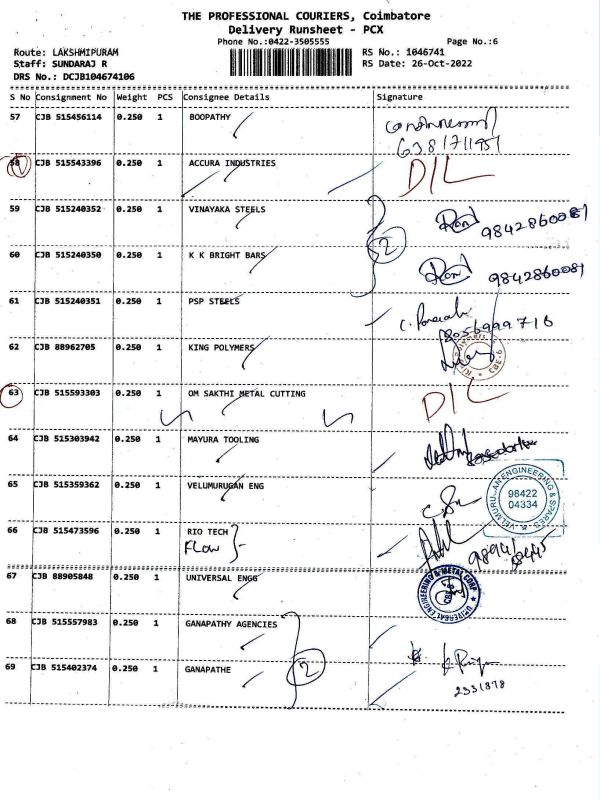 THE PROFESSIONAL COURIERS, Coimbatore
Delivery Runsheet - PCX
Phone No.:0422-3505555 Page No.:6
Route: LAKSHMIPURAM RS No.: 1046741
Staff: SUNDARAJ R RS Date: 26-Oct-2022
DRS No.: DCJB104674106
S No Consignment No Weight PCS Consignee Details Signature
57 CJB 515456114 0.250 1 BOOPATHY
6381711951
58 CJB 515543396 0.250 1 ACCURA INDUSTRIES D/L
59 CJB 515240352 0.250 1 VINAYAKA STEELS 9842860081
2
60 CJB 515240350 0.250 1 K K BRIGHT BARS 9842860081
61 CJB 515240351 0.250 1 PSP STEELS
8056999716
62 CJB 88962705 0.250 1 KING POLYMERS
CBE-6
63 CJB 515593303 0.250 1 OM SAKTHI METAL CUTTING D/L
64 CJB 515303942 0.250 1 MAYURA TOOLING
65 CJB 515359362 0.250 1 VELUMURUGAN ENG
VELMURUGAN ENGINEERING & SPARES
98422
04334
66 CJB 515473596 0.250 1 RIO TECH
Flow
67 CJB 88905848 0.250 1 UNIVERSAL ENGG
UNIVERSAL ENGINEERING & METAL CORP
68 CJB 515557983 0.250 1 GANAPATHY AGENCIES
2
69 CJB 515402374 0.250 1 GANAPATHE
2331878